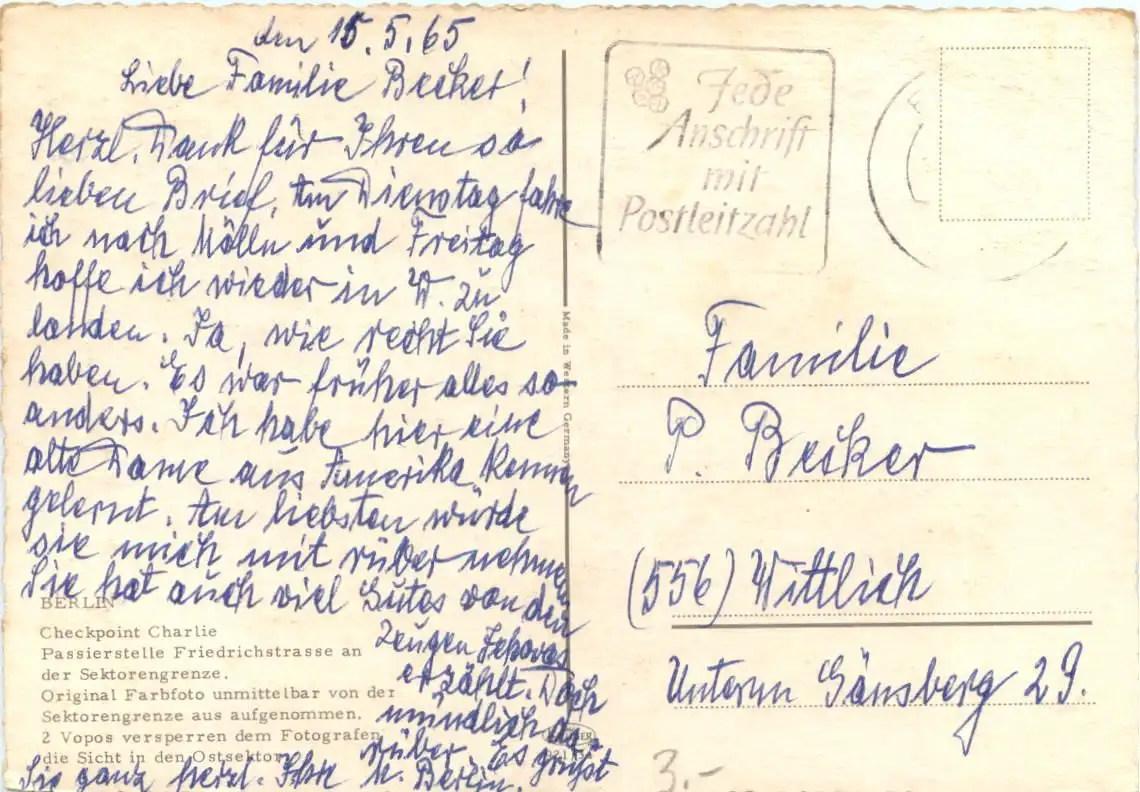 den 15.5.65
Liebe Familie Becker!
Herzl. Dank für Ihren so
lieben Brief. Am Dienstag fahre
ich nach Mölln und Freitag
hoffe ich wieder in W. zu
landen. Ja, wie recht Sie
haben. Es war früher alles so
anders. Ich habe hier eine
alte Dame aus Amerika kennen
gelernt. Am liebsten würde
sie mich mit rüber nehmen
Sie hat auch viel Gutes von den
Zeugen Jehovas
erzählt. Doch
mündlich da-
rüber. Es grüßt
Sie ganz herzl. Ihre M. Berlin.
BERLIN
Checkpoint Charlie
Passierstelle Friedrichstrasse an
der Sektorengrenze.
Original Farbfoto unmittelbar von der
Sektorengrenze aus aufgenommen.
2 Vopos versperren dem Fotografen
die Sicht in den Ostsektor
Made in Western Germany
Jede
Anschrift
mit
Postleitzahl
Familie
P. Becker
(556) Wittlich
Unterm Gänsberg 29.
3.-